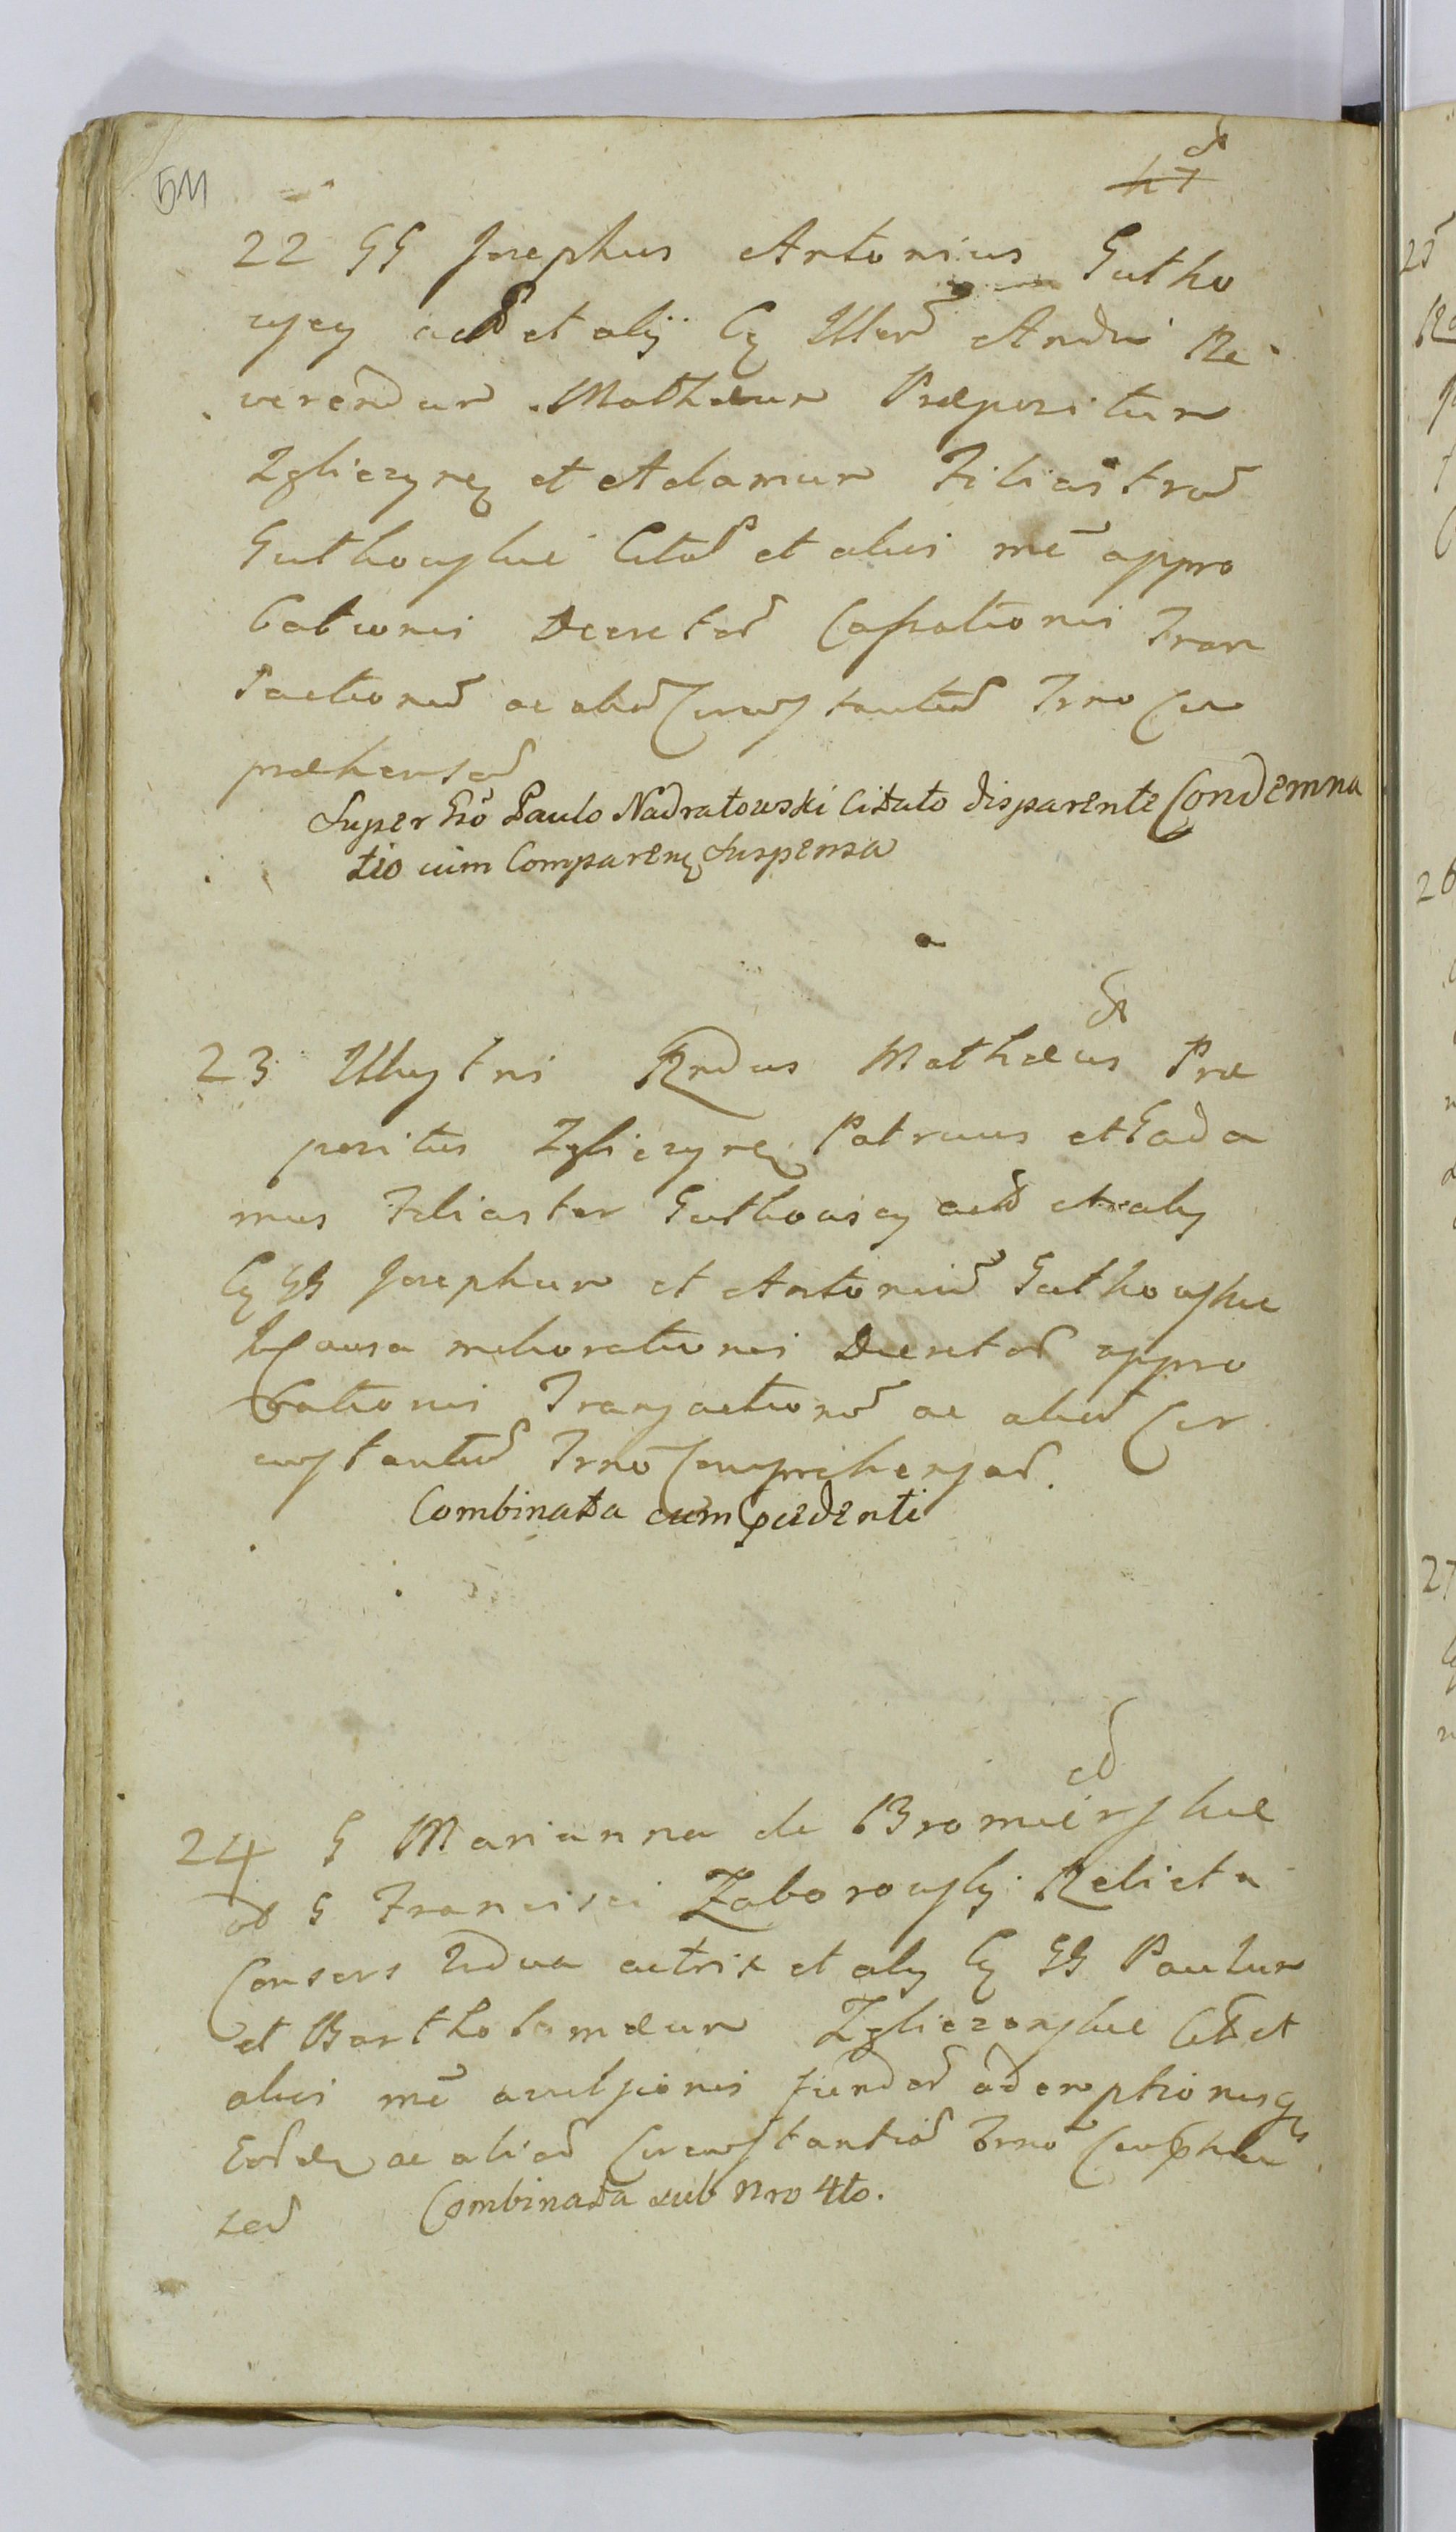 511
47
22 GG Josephus Antonius Gutho
wscy act et alij Cŋ Illend Andm Re
verendum Mathæum Præpositum
Zglicynen et Adamum Filiastrum
Guthowskie Citat et alios mē appro
bationis Decretor Cassationis Tran
sactionum ac aliar Circumstantiar Trno Com
præhensar
Super Gso Paulo Nadratowski Citato disparente Condemna
tio cum Comparen Suspensa
23 Illustris Rndus Mathæus Præ
positus Zglicynen Patruus et Gada
mus Filiaster Guthowscy act et aly
Cŋ GG Josephum et Antonium Guthowskie
In Causa meliorationis Decretor appro
bationis Transactionum ac aliar Cir
cumstantiar Trno Comprehensar.
Combinata cum Pcedenti
24 G Marianna de Bromierskie
ol G Francisci Zaborowsky Relicta
Consors Vidua actrix et aly Cŋ GG Paulum
et Bartholomæum Zgliczenskie Cit et
alios mē avulsionis fundor ademptionisq
Eordem ac aliar Circumstantiar Trno Comphen
sar Combinata sub Nro 4to.